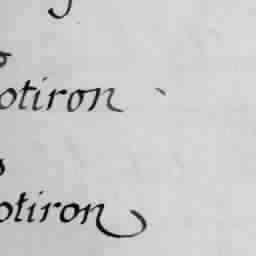 otiron
otiron